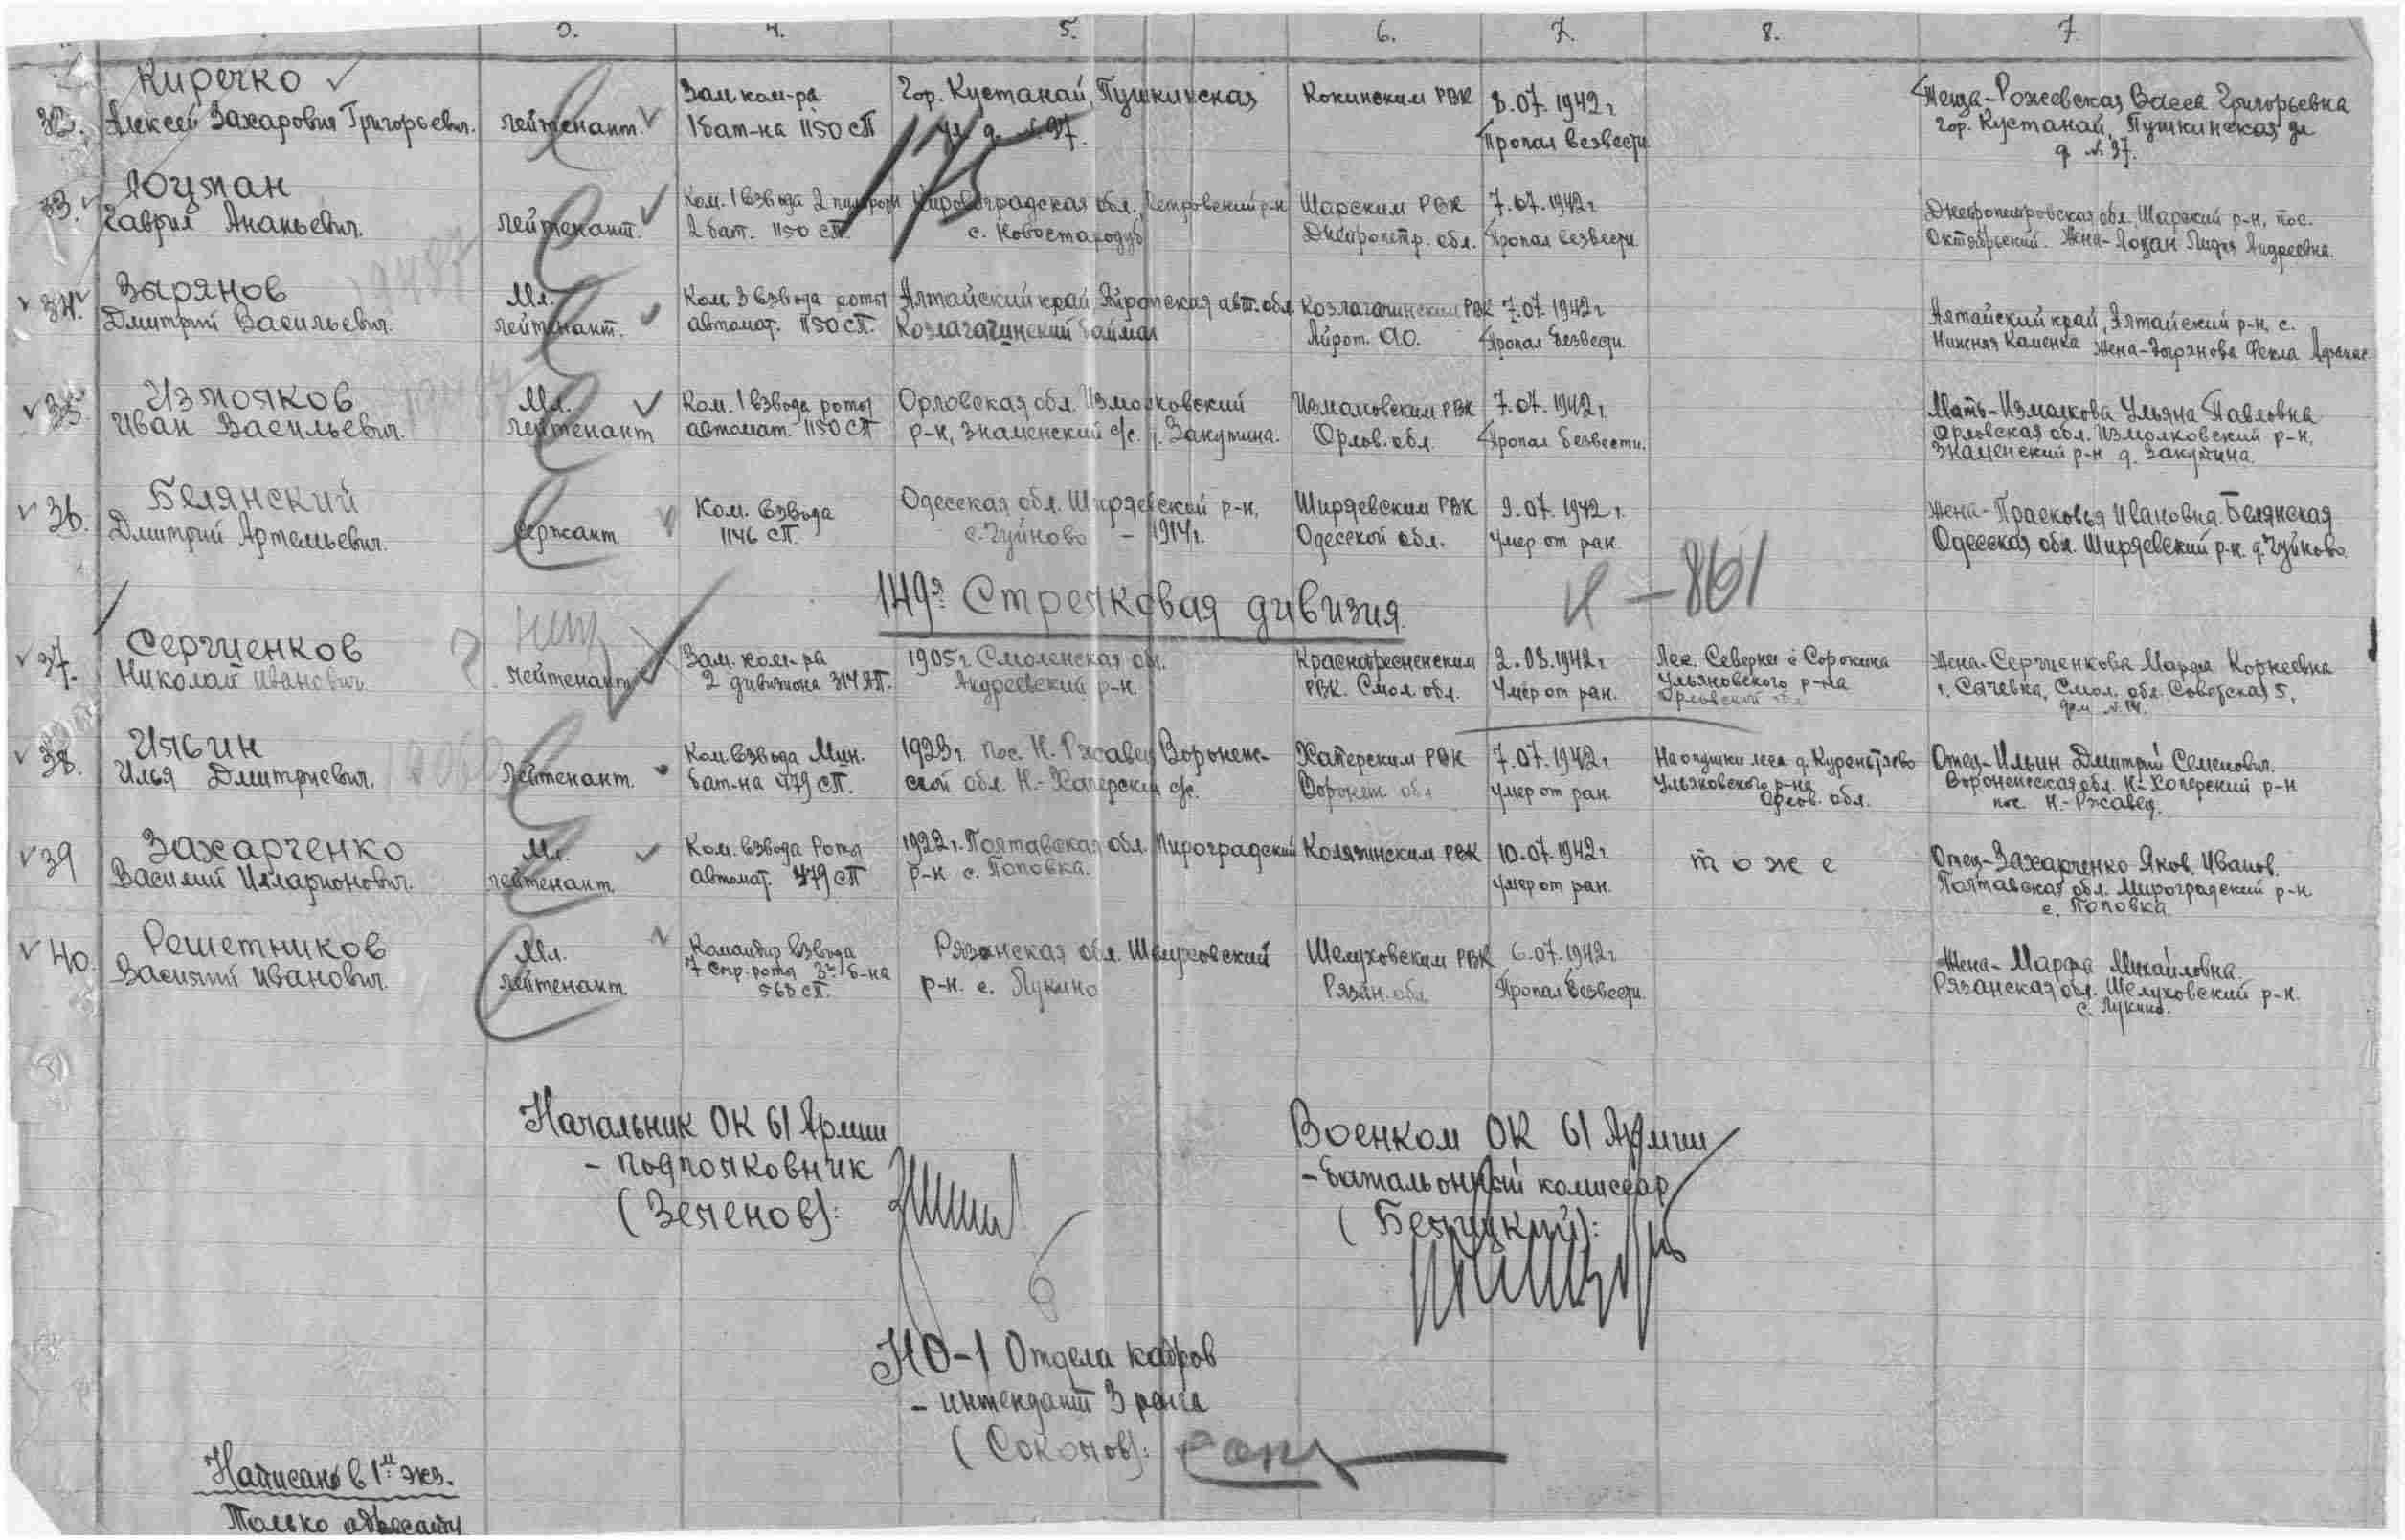 3. 4. 5. 6. 7. 8. 7
32. Киречко
Алексей Захарович Григорьевич.
лейтенант.
Зам. ком-ра
1 бат-на 1150 СП
Гор. Кустанай, Пушкинская
ул. д. № 97.
РВК
8.07.1942 г.
Пропал безвести
Теща - Рожевская Васса Григорьевна
гор. Кустанай, Пушкинская ул
д. № 97.
33. Лоцман
Гаврил Ананьевич.
лейтенант.
Ком. 1 взвода 2
2 бат. 1150 СП.
Кировоградская обл. Петровский р-н
с. Новостародуб
Шарским РВК
Днепропетр. обл.
7.07.1942 г
Пропал безвести.
Днепропетровская обл., Шарский р-н, пос.
Октябрьский. Жена - Лидия Андреевна.
34. Зырянов
Дмитрий Васильевич.
Мл.
лейтенант.
Ком. 3 взвода роты
автомат. 1150 СП.
Алтайский край, Айротская авт. обл.
Козлагачинский
Козлагачинским РВК
Айрот. АО.
7.07.1942 г
Пропал безвести.
Алтайский край, Алтайский р-н, с.
Нижняя Каменка Жена - Зырянова Фекла
35. Измолков
Иван Васильевич.
Мл.
лейтенант
Ком. 1 взвода роты
автомат. 1150 СП
Орловская обл. Измолковский
р-н, Знаменский с/с. д. Закутина.
РВК
Орлов. обл.
7.07.1942 г.
Пропал безвести.
Мать - Измолкова Ульяна Павловна
Орловская обл. Измолковский р-н,
Знаменский р-н д. Закутина.
36. Белянский
Дмитрий Артемьевич.
сержант.
Ком. взвода
1146 СП.
Одесская обл. Ширяевский р-н,
с. Чуйново - 1914 г.
Ширяевским РВК
Одесской обл.
9.07.1942 г.
умер от ран.
Жена - Прасковья Ивановна Белянская
Одесская обл. Ширяевский р-н. д. Чуйково.
149я Стрелковая дивизия.
И - 861
37. Сергиенков
Николай Иванович
лейтенант
Зам. ком-ра
2 дивизиона 314 АП.
1905 г. Смоленская об.
Андреевский р-н.
РВК. Смол. обл.
2.08.1942 г.
Умер от ран.
Лес. Севернее с Сорокина
Ульяновского р-на
Орловской обл
Жена - Сергиенкова Марфа Корнеевна
г. Сычевка, Смол. обл. Советская 5,
дом № 14.
38. Ильин
Илья Дмитриевич.
Лейтенант.
Ком. взвода Мин.
бат-на 479 СП.
1923 г. пос. Н. Ржавец Воронеж-
ской обл. Н.-Хоперский с/с.
Хаперским РВК
Воронеж обл
7.07.1942 г.
умер от ран.
На опушки леса д.
Ульяновского р-на
Орлов. обл.
Отец - Ильин Дмитрий Семенович.
Воронежская обл. Н-Хоперский р-н
пос. Н.-Ржавец.
39 Захарченко
Василий Илларионович.
Мл.
лейтенант.
Ком. взвода Роты
автомат. 479 СП
1922 г. Полтавская обл. Мироградский
р-н с. Поповка.
РВК
10.07.1942 г.
умер от ран.
т о ж е
Отец - Захарченко Яков Иванов.
Полтавская обл. Мироградский р-н.
с. Поповка
40. Решетников
Василий Иванович.
Мл.
лейтенант
Командир взвода
7 стр. роты 3го б-на
568 СП.
Рязанская обл. Шелуховский
р-н. с. Лукино
Шелуховским РВК
Рязан. обл
6.07.1942 г
Пропал безвести.
Жена - Марфа Михайловна.
Рязанская обл. Шелуховский р-н.
с. Лукино.
Начальник ОК 61 Армии
- подполковник
(Зеленов):
Военком ОК 61 Армии
- батальонный комиссар
НО-1 Отдела кадров
- интендант 3 ранга
(Соколов):
Написано в 1м экз.
Только адресату